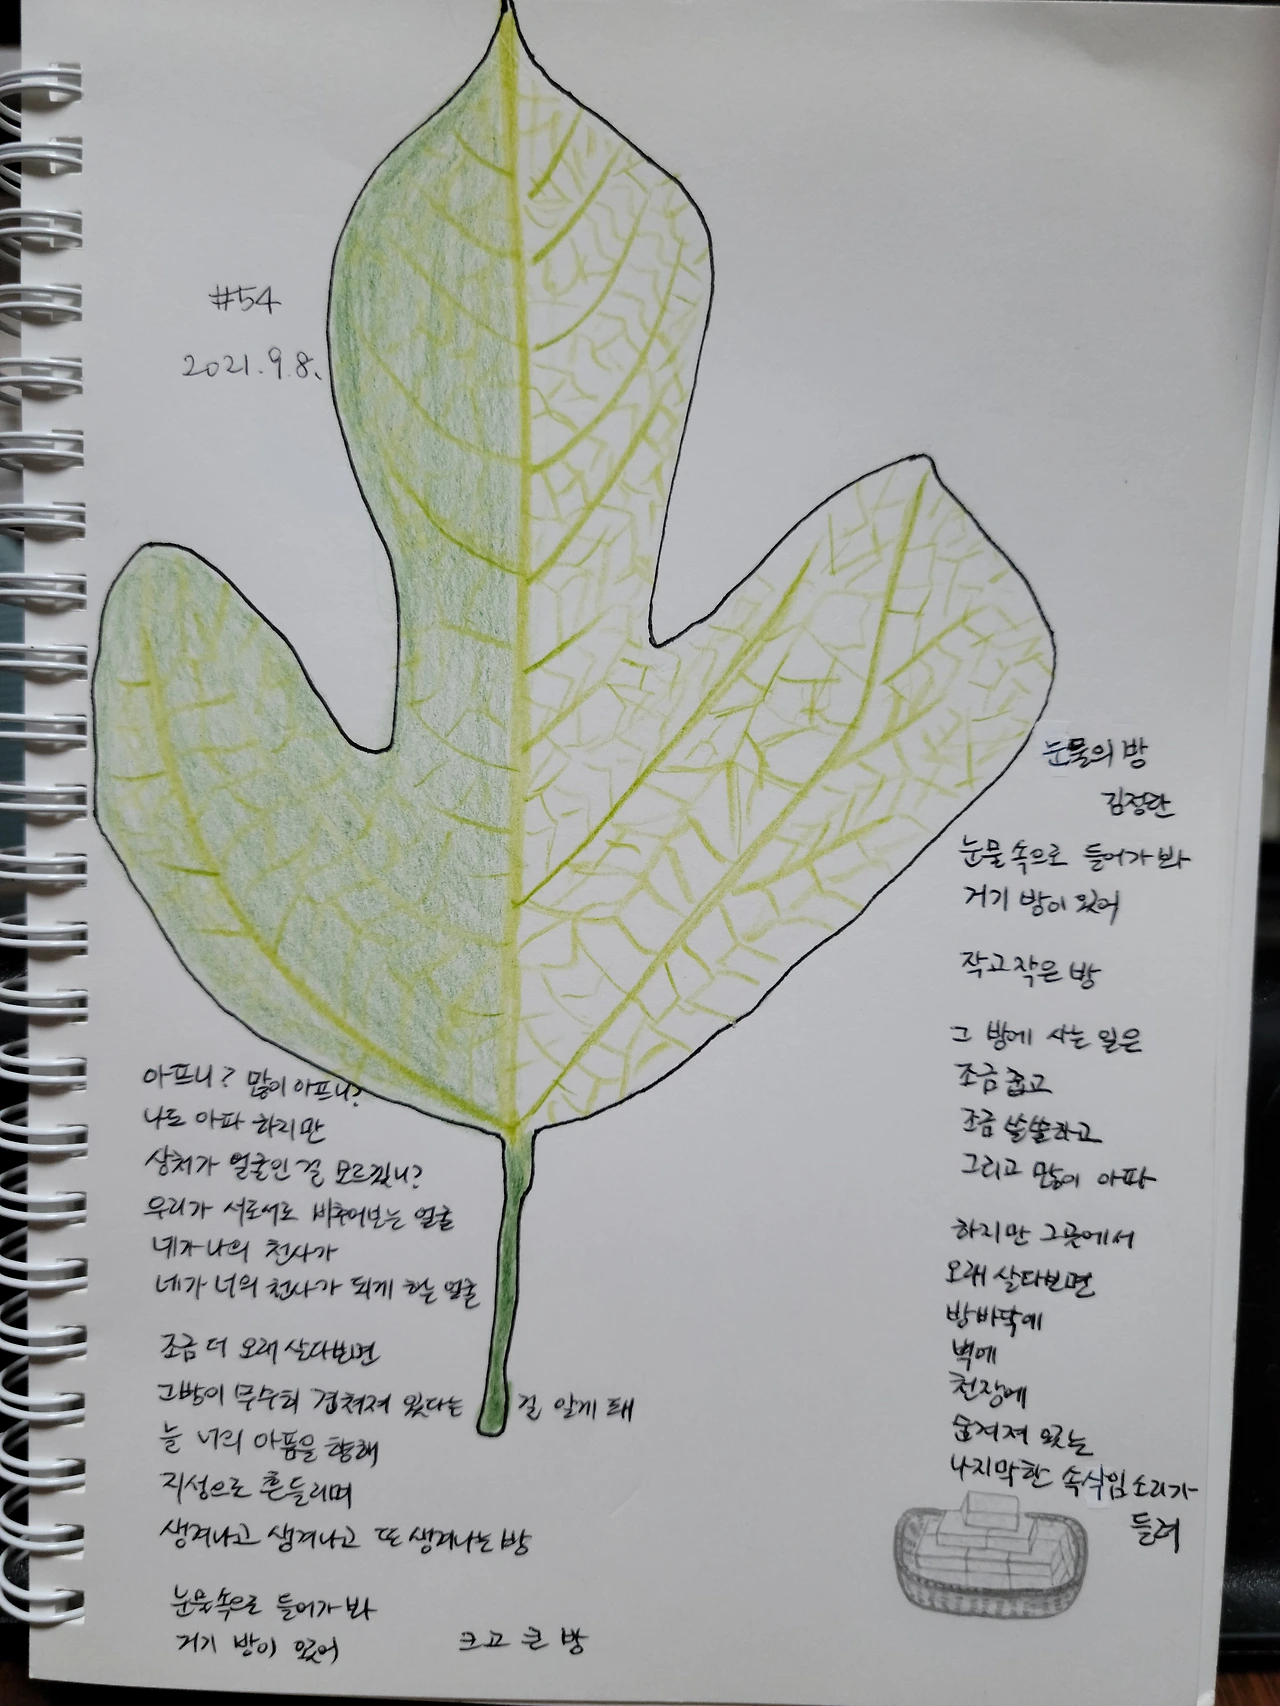 #54
2021.9.8.
눈물의 방
김정란
눈물 속으로 들어가 봐
거기 방이 있어
작고 작은 방
그 방에 사는 일은
조금 춥고
조금 쓸쓸하고
그리고 많이 아파
하지만 그곳에서
오래 살다보면
방바닥에
벽에
천장에
숨겨져 있는
나지막한 속삭임 소리가
들려
아프니? 많이 아프니?
나도 아파 하지만
상처가 얼굴인 걸 모르겠니?
우리가 서로서로 비추어보는 얼굴
네가 나의 천사가
네가 너의 천사가 되게 하는 얼굴
조금 더 오래 살다보면
그방이 무수히 겹쳐져 있다는 걸 알게 돼
늘 너의 아픔을 향해
지성으로 흔들리며
생겨나고 생겨나고 또 생겨나는 방
눈물 속으로 들어가 봐
거기 방이 있어
크고 큰 방